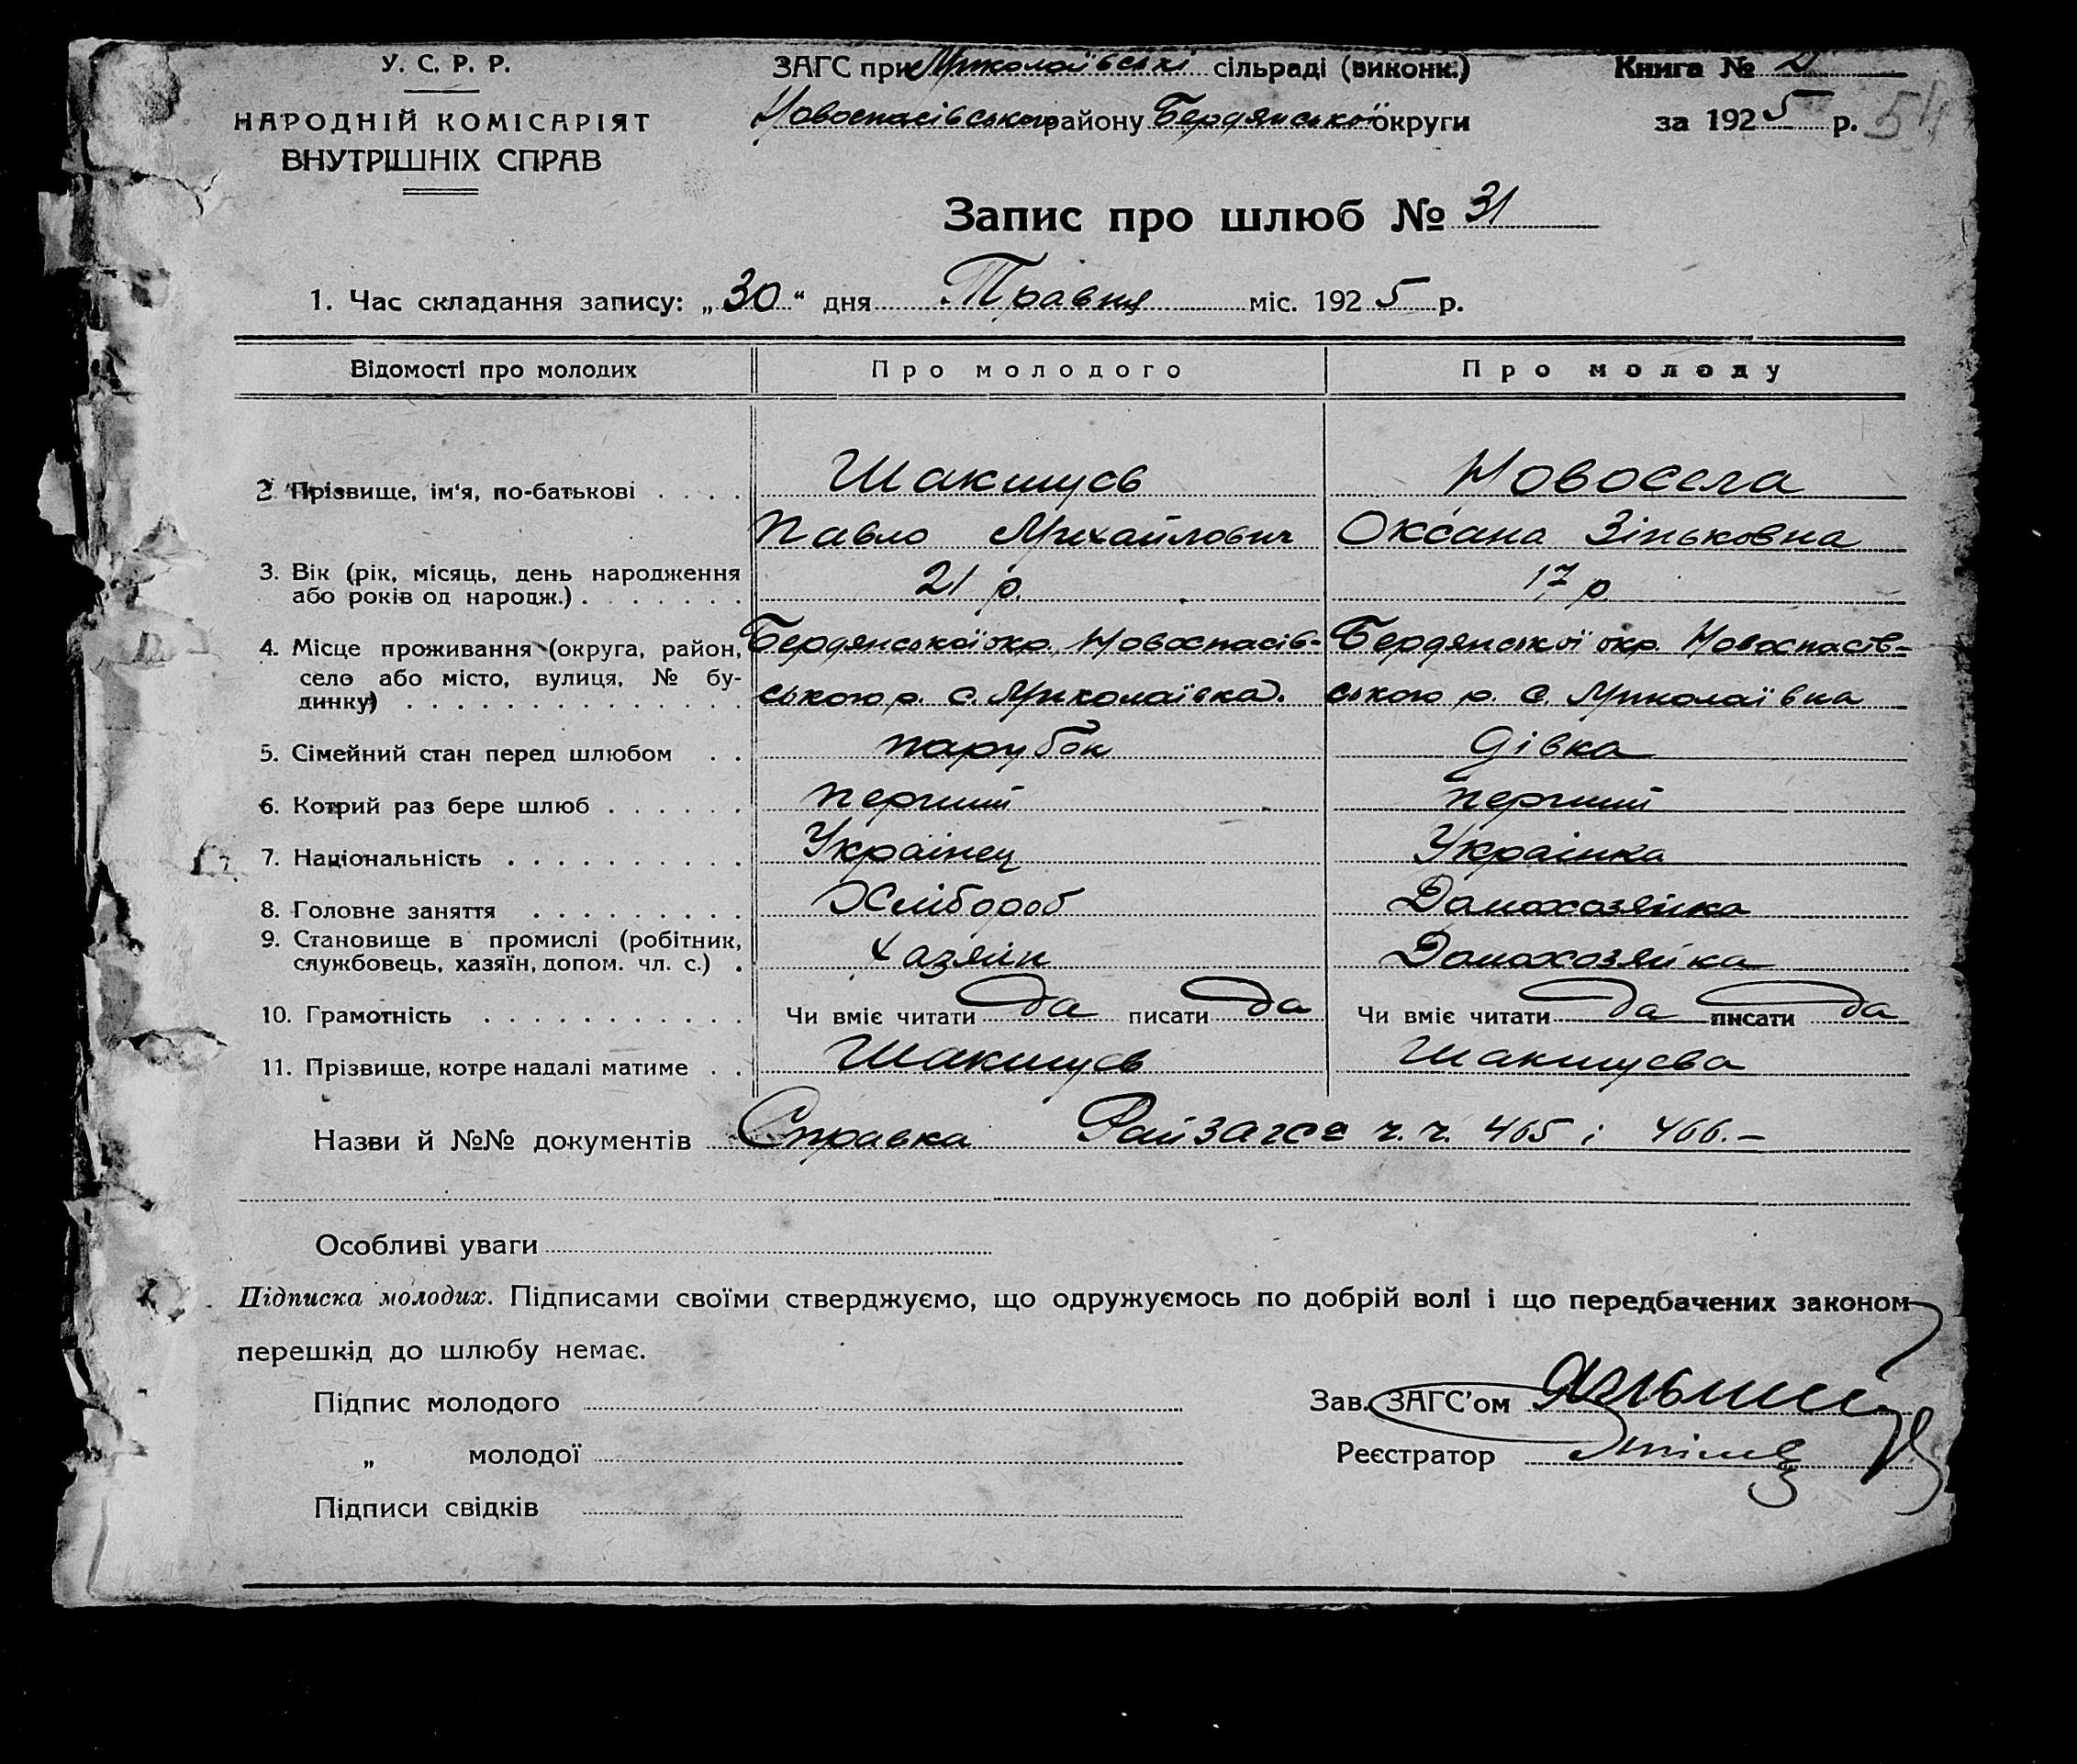 У. С. Р. Р.
НАРОДНІЙ КОМІСАРІЯТ
ВНУТРІШНІХ СПРАВ
ЗАГС при Миколаївські сільраді (виконк.)
Новоспасівського району Бердянської округи
Книга №
за 1925 р. 54
Запис про шлюб № 31
1. Час складання запису: „30“ дня Травня міс. 1925 р.
Відомості про молодих Про молодого Про молоду
2. Прізвище, ім'я, по-батькові . . . . Шакшуєв Новосела
Павло Михайлович Оксана Зіньковна
3. Вік (рік, місяць, день народження
або років од народж.) . . . . . . . 21 р. 17 р
4. Місце проживання (округа, район, Бердянської окр. Новоспасів- Бердянської окр. Новоспасів-
село або місто, вулиця, № бу-
динку) . . . . . . . . . . . . . . ського р. с. Миколаївка. ського р. с. Миколаївка
5. Сімейний стан перед шлюбом . . парубок дівка
6. Котрий раз бере шлюб . . . . . . перший перший
7. Національність . . . . . . . . . . Українец Українка
8. Головне заняття . . . . . . . . . Хлібороб Домохозяйка
9. Становище в промислі (робітник,
службовець, хазяїн, допом. чл. с.) . хазяїн Домохозяйка
10. Грамотність . . . . . . . . . . . Чи вміє читати да писати да Чи вміє читати да писати да
11. Прізвище, котре надалі матиме . . Шакшуєв Шакшуєва
Назви й №№ документів Справка Райзагса ч.ч. 465 і 466.–
Особливі уваги
Підписка молодих. Підписами своїми стверджуємо, що одружуємось по добрій волі і що передбачених законом
перешкід до шлюбу немає.
Підпис молодого
„ молодої
Підписи свідків
Зав. ЗАГС'ом
Реєстратор